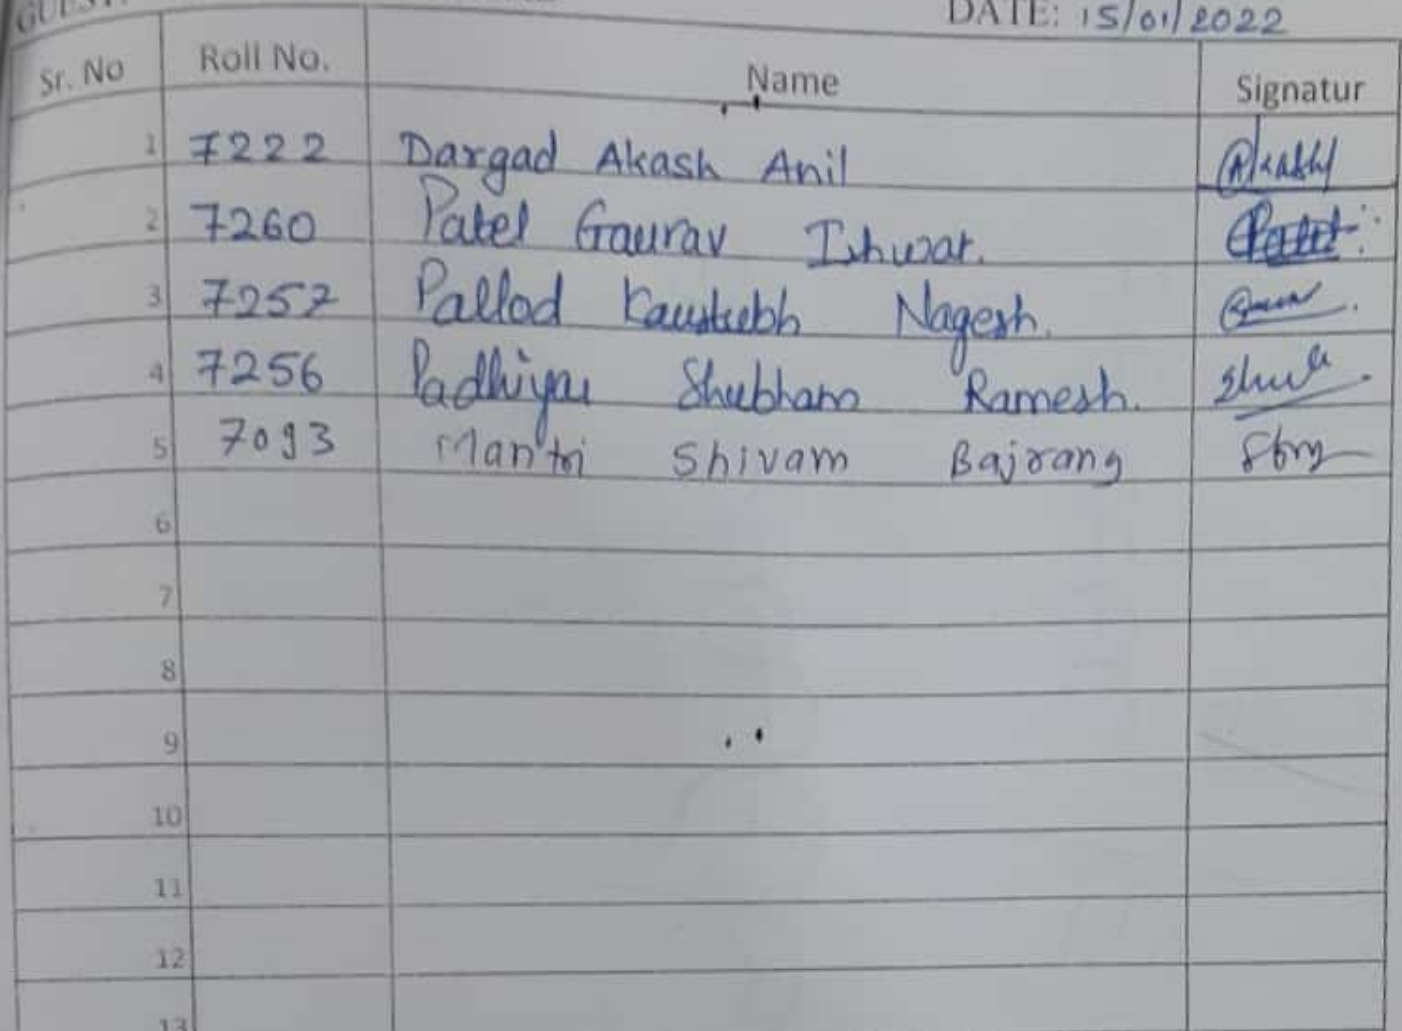 DATE: 15/01/2022
Sr. No Roll No. Name Signatur
1 7222 Dargad Akash Anil Akash
2 7260 Patel Gaurav Ishwar. Patel
3 7257 Pallod Kaustubh Nagesh.
4 7256 Padhiyar Shubham Ramesh.
5 7093 Mantri Shivam Bajrang
6
7
8
9
10
11
12
13